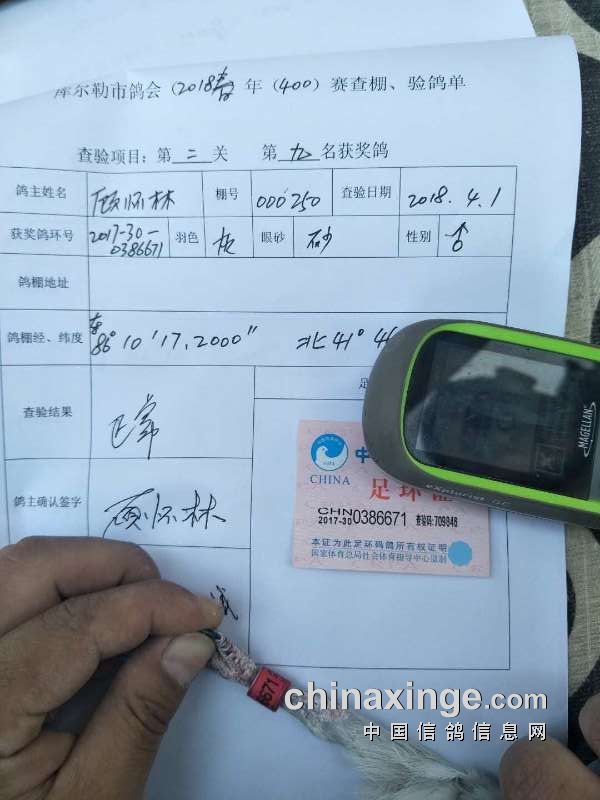 库尔勒市鸽会（2018春年（400）赛查棚、验鸽单
查验项目：第二关 第九名获奖鸽
鸽主姓名 顾怀林 棚号 000250 查验日期 2018.4.1
获奖鸽环号 2017-30-0386671 羽色 灰 眼砂 砂 性别 ♂
鸽棚地址
鸽棚经、纬度 东86°10′17.2000″ 北41°4
查验结果 正常 足
鸽主确认签字 顾怀林
CHINA 中
足环证
CHN
2017-30 0386671 查验码:709848
本证为此足环码鸽所有权证明
国家体育总局社会体育指导中心监制
MAGELLAN
eXplorist
6671
chinaxinge.com
中国信鸽信息网